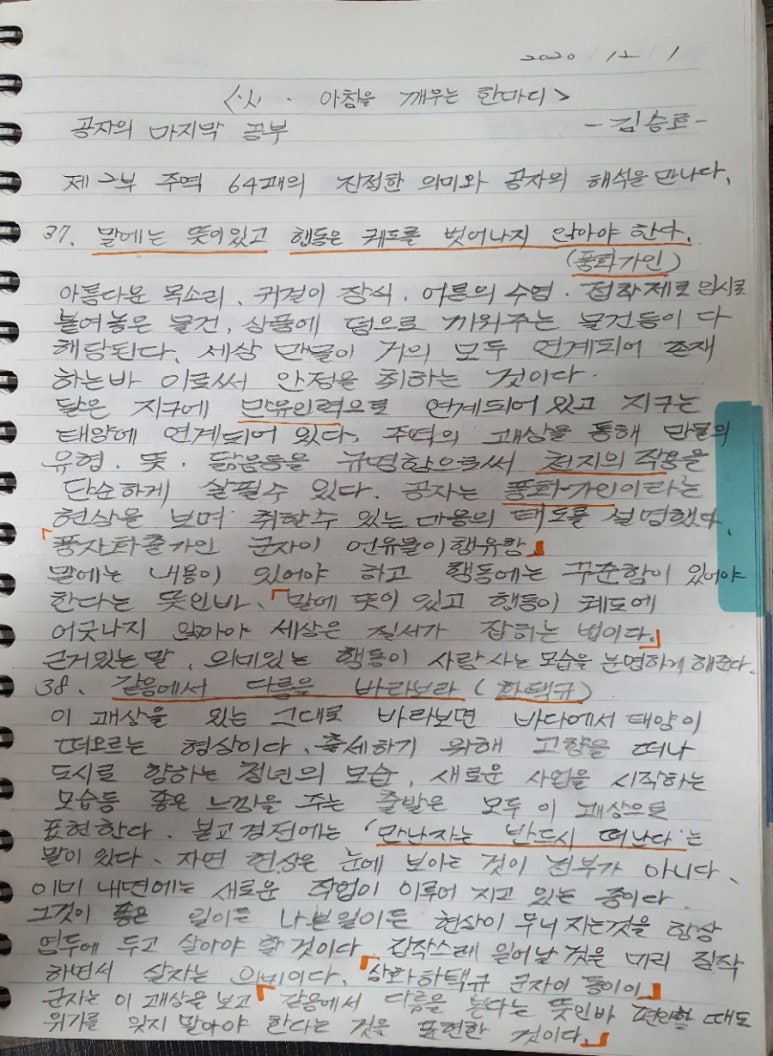 2020 / 12 / 1
<人 . 아침을 깨우는 한마디>
공자의 마지막 공부 - 김승호 -
제 2부 주역 64괘의 진정한 의미와 공자의 해석을 만나다.
37. 말에는 뜻이 있고 행동은 궤도를 벗어나지 않아야 한다.
(풍화가인)
아름다운 목소리, 귀걸이 장식, 어른의 수염, 접착제로 임시로
붙여놓은 물건, 상품에 덤으로 끼워주는 물건등이 다
해당된다. 세상 만물이 거의 모두 연계되어 존재
하는바 이로써 안정을 취하는 것이다.
달은 지구에 만유인력으로 연계되어 있고 지구는
태양에 연계되어 있다. 주역의 괘상을 통해 만물의
유형, 뜻, 닮음등을 규명함으로써 천지의 작용을
단순하게 살필수 있다. 공자는 풍화가인이라는
현상을 보며 취할수 있는 마음의 태도를 설명했다.
「풍자화출가인 군자이 언유물이행유항」
말에는 내용이 있어야 하고 행동에는 꾸준함이 있어야
한다는 뜻인바, 「말에 뜻이 있고 행동이 궤도에
어긋나지 않아야 세상은 질서가 잡히는 법이다.」
근거있는 말, 의미있는 행동이 사람 사는 모습을 분명하게 해준다.
38. 같음에서 다름을 바라보라 (화택규)
이 괘상을 있는 그대로 바라보면 바다에서 태양이
떠오르는 형상이다. 출세하기 위해 고향을 떠나
도시로 향하는 청년의 모습, 새로운 사업을 시작하는
모습등 좋은 느낌을 주는 출발은 모두 이 괘상으로
표현한다. 불교경전에는 '만난자는 반드시 떠난다'는
말이 있다. 자연 현상은 눈에 보이는 것이 전부가 아니다.
이미 내면에는 새로운 작업이 이루어 지고 있는 중이다.
그것이 좋은 일이든 나쁜일이든 현상이 무너 지는것을 항상
염두에 두고 살아야 할 것이다. 갑작스레 일어날 것을 미리 짐작
하면서 살자는 의미이다. 「상화하택규 군자이 동이이」
군자는 이 괘상을 보고 「같음에서 다름을 본다는 뜻인바 편안할 때도
위기를 잊지 말아야 한다는 것을 표현한 것이다.」